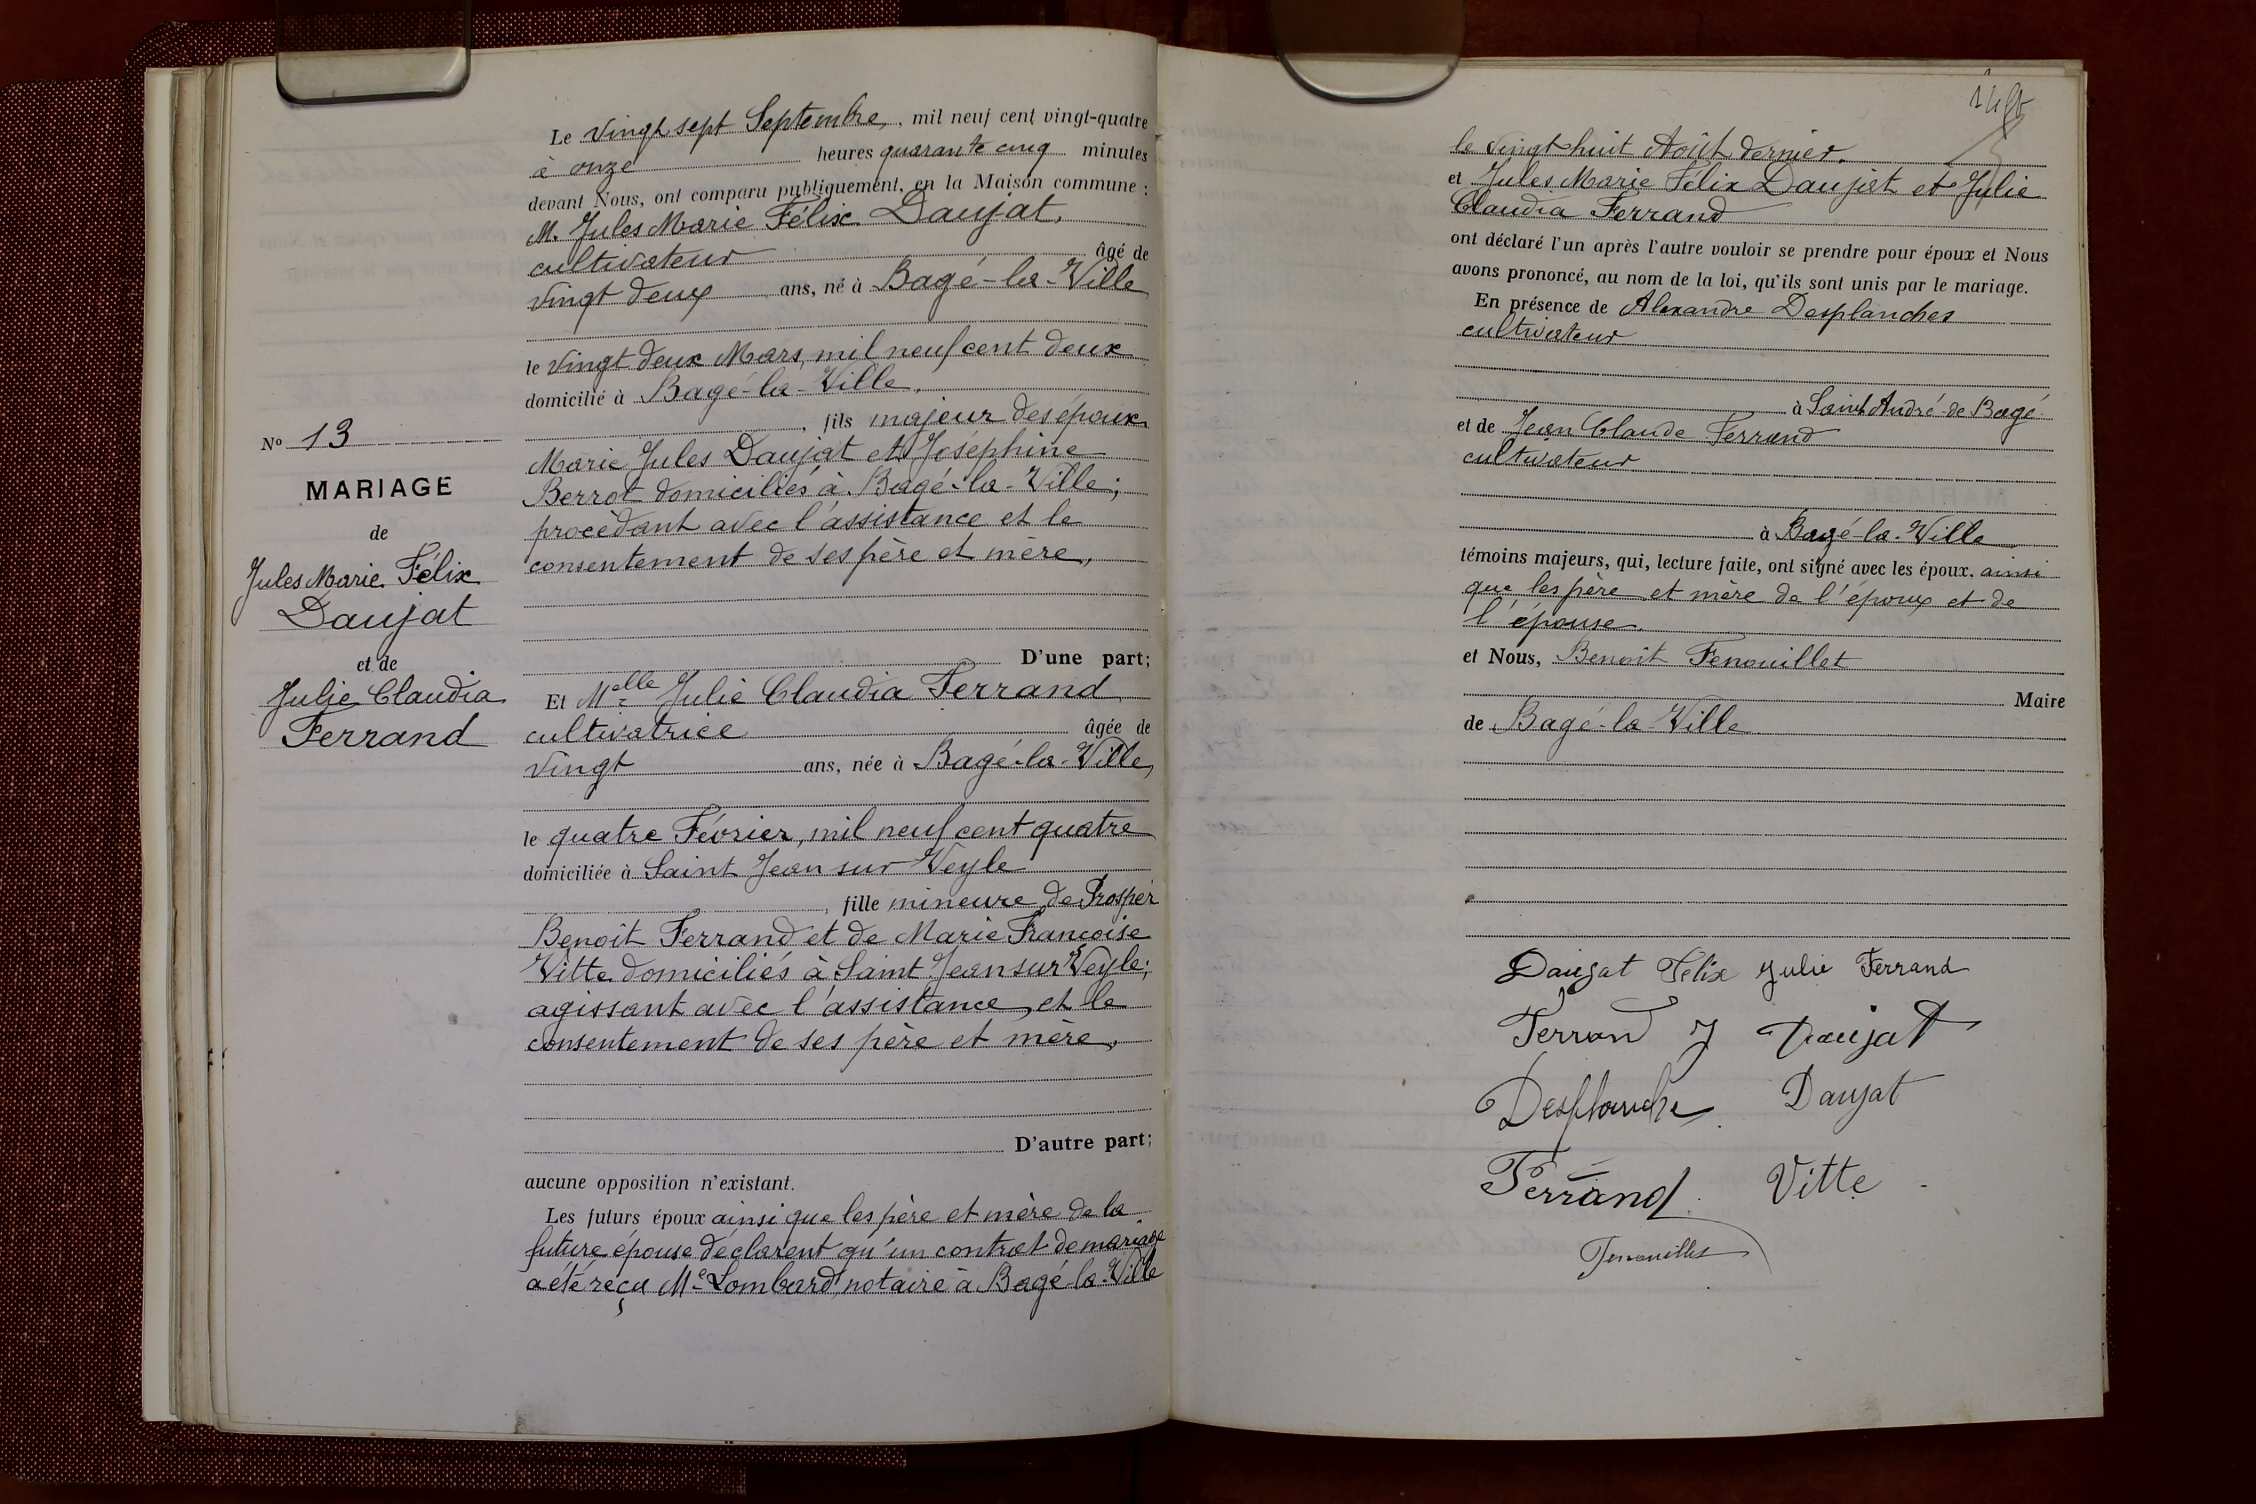 Le vingt sept Septembre, mil neuf cent vingt-quatre
à onze heures quarante cinq minutes
devant Nous, ont comparu publiquement, en la Maison commune :
M. Jules Marie Félix Daujat,
cultivateur âgé de
vingt deux ans, né à Bagé-la-Ville
le vingt deux Mars, mil neuf cent deux
domicilié à Bagé-la-Ville,
, fils majeur des époux
Marie Jules Daujat et Joséphine
Berrot domiciliés à Bagé-la-Ville;
procèdant avec l'assistance et le
consentement de ses père et mère,
D'une part;
Et Melle Julie Claudia Ferrand
cultivatrice âgée de
vingt ans, née à Bagé-la-Ville,
le quatre Février, mil neuf cent quatre
domiciliée à Saint Jean sur Veyle
, fille mineure de Prosper
Benoît Ferrand et de Marie Françoise
Vitte domiciliés à Saint Jean sur Veyle;
agissant avec l'assistance et le
consentement de ses père et mère,
D'autre part;
aucune opposition n'existant.
Les futurs époux ainsi que les père et mère de la
future épouse déclarent qu'un contrat de mariage
a été reçu Me Lombard, notaire à Bagé-la-Ville
No 13
MARIAGE
de
Jules Marie Félix
Daujat
et de
Julie Claudia
Ferrand
le vingt huit Août dernier.
et Jules Marie Félix Daujat et Julie
Claudia Ferrand
ont déclaré l'un après l'autre vouloir se prendre pour époux et Nous
avons prononcé, au nom de la loi, qu'ils sont unis par le mariage.
En présence de Alexandre Desplanches
cultivateur
à Saint André-de-Bagé
et de Jean Claude Ferrand
cultivateur
à Bagé-la-Ville
témoins majeurs, qui, lecture faite, ont signé avec les époux. ainsi
que les père et mère de l'époux et de
l'épouse.
et Nous, Benoît Fenouillet
Maire
de Bagé-la-Ville
Daujat Félix Julie Ferrand
Ferrand J Daujat
Desplanche Daujat
Ferrand Vitte
Fenouillet